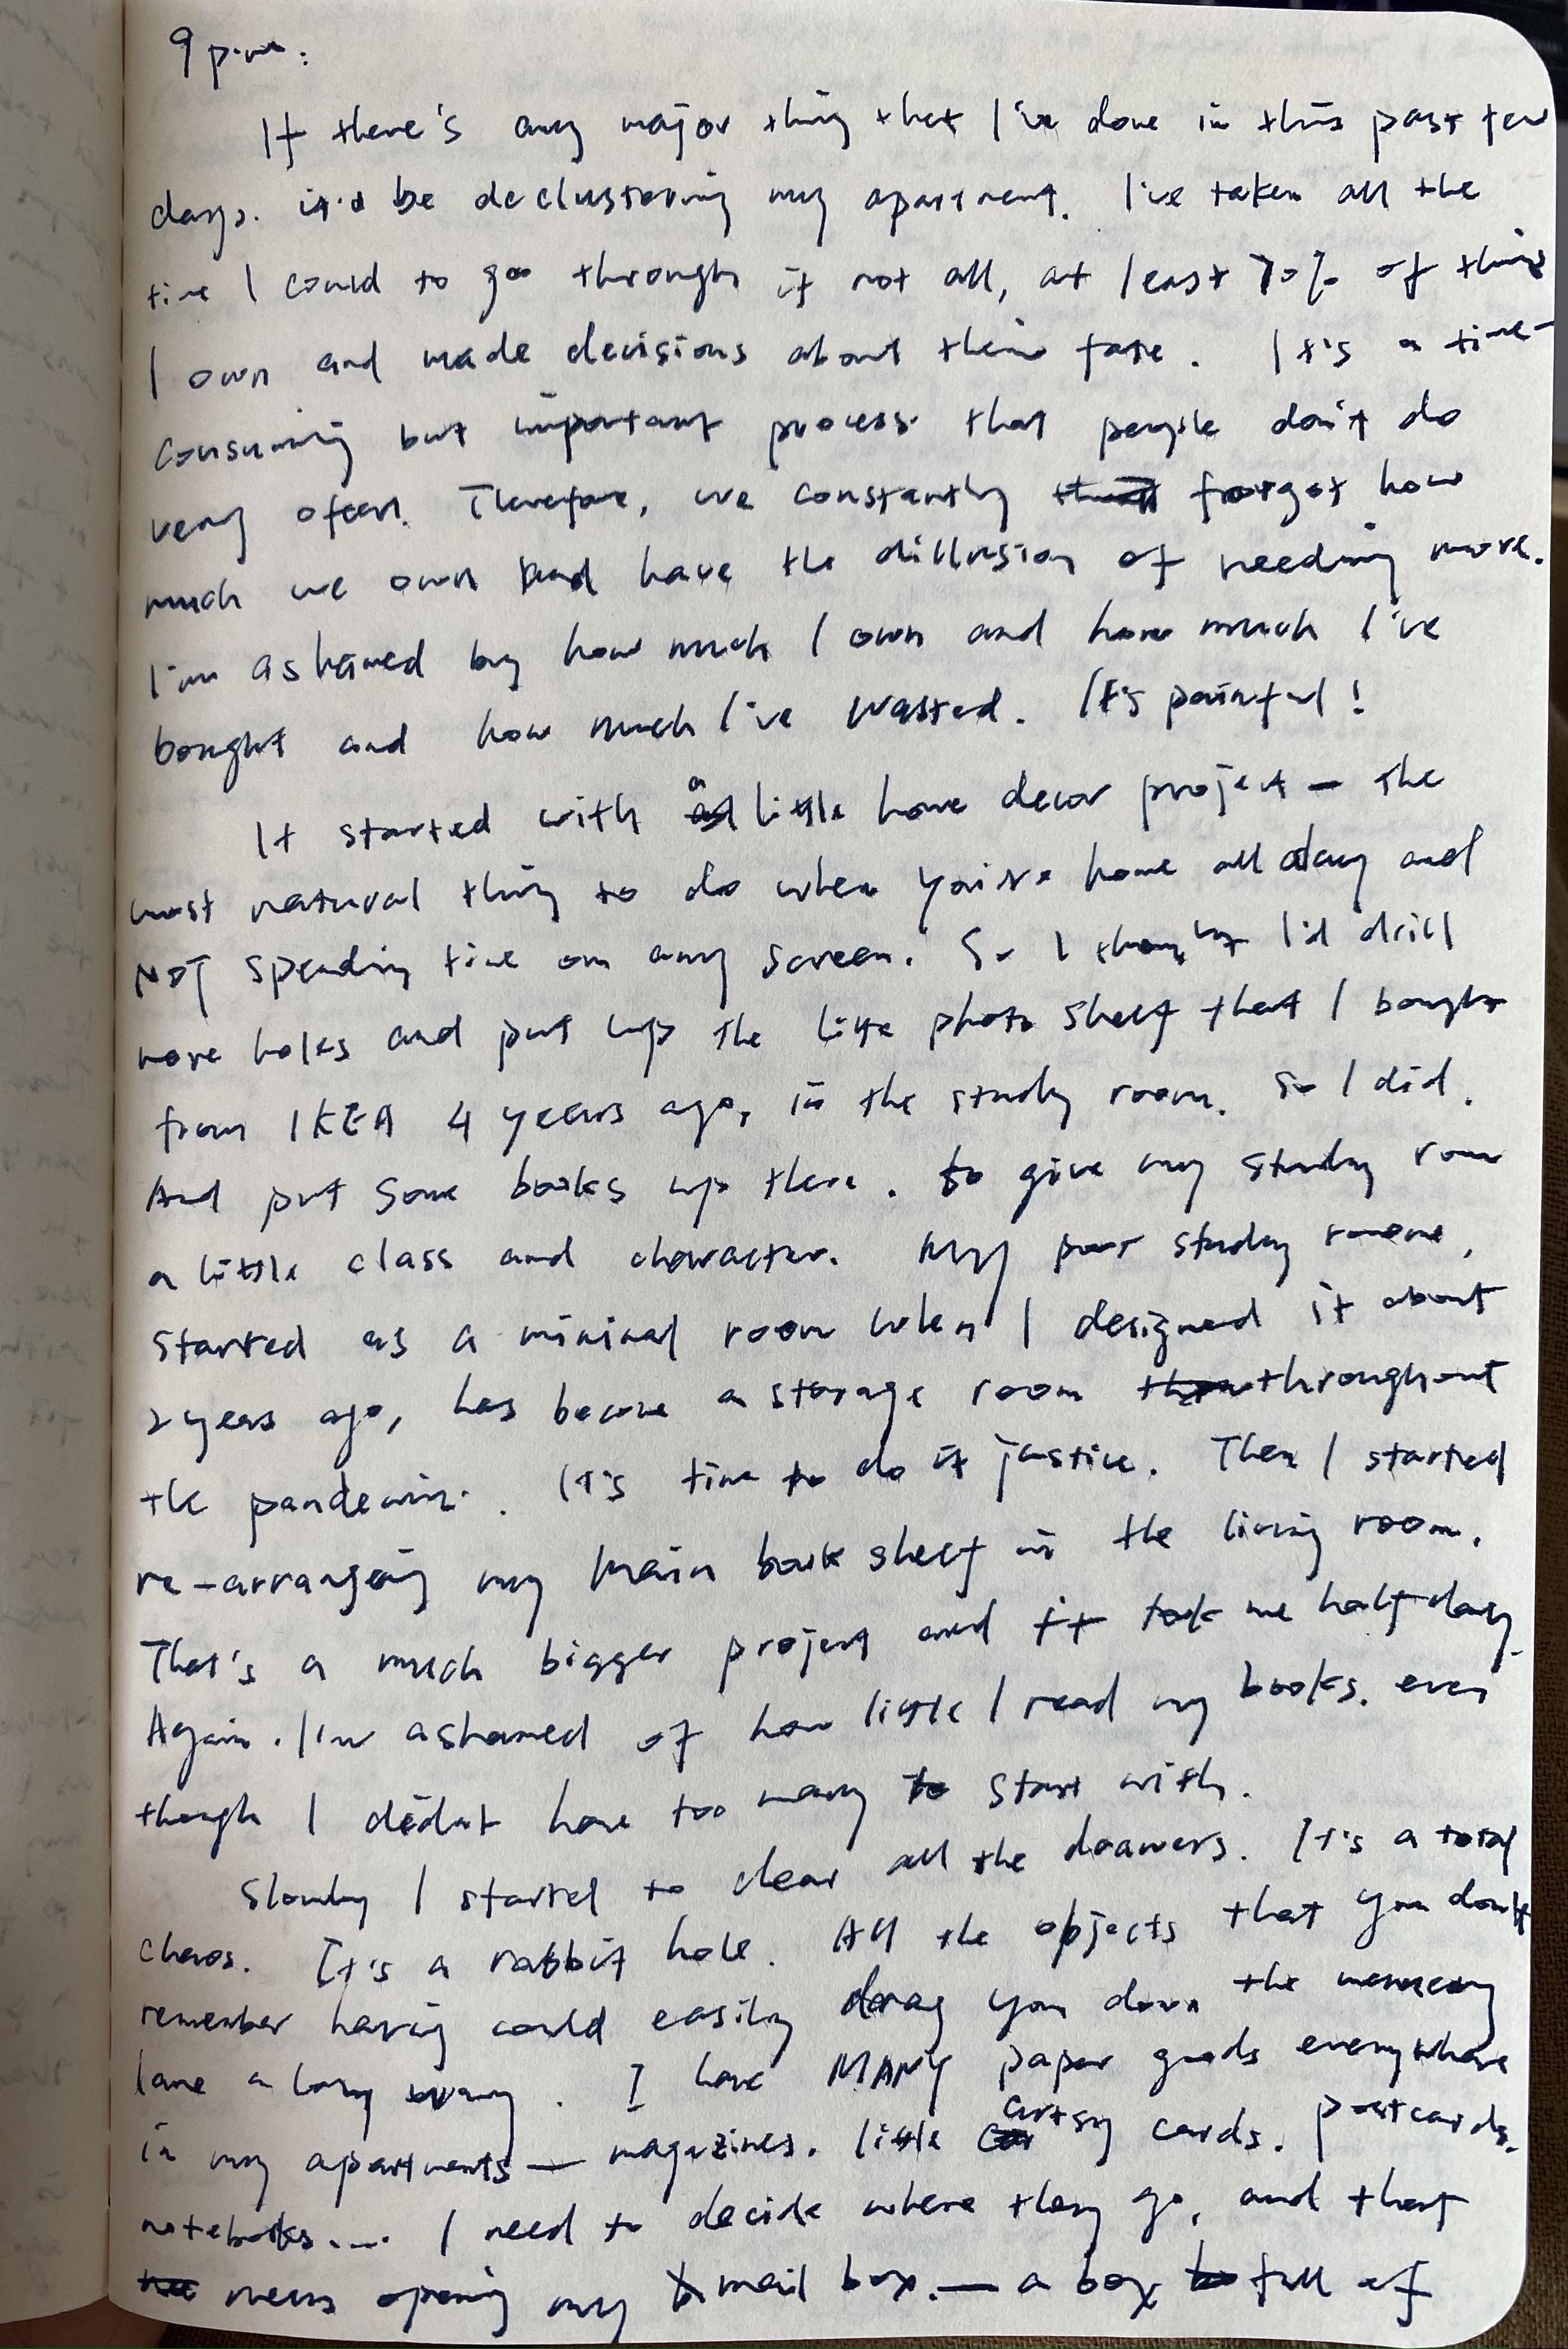 9 p.m.:
If there's any major thing that I've done in this past few
days. it'd be declustering my apartment. I've taken all the
time I could to go through if not all, at least 70% of things
I own and made decisions about their fate. It's a time-
consuming but important process that people don't do
very often. Therefore, we constantly forget how
much we own and have the dillusion of needing more.
I'm ashamed by how much I own and how much I've
bought and how much I've wasted. It's painful!
It started with a little home decor project — the
most natural thing to do when you're home all day and
NOT spending time on any screen. So I thought I'd drill
more holes and put up the little photo shelf that I bought
from IKEA 4 years ago, in the study room. So I did.
And put some books up there. to give my study room
a little class and character. My poor study room,
started as a minimal room when I designed it about
2 years ago, has become a storage room throughout
the pandemic. It's time to do it justice. Then I started
re-arranging my main book shelf in the living room.
That's a much bigger project and it took me half day.
Again. I'm ashamed of how little I read my books. even
though I didn't have too many to start with.
Slowly I started to clear all the drawers. It's a total
chaos. It's a rabbit hole. All the objects that you don't
remember having could easily drag you down the memory
lane a long way. I have MANY paper goods everywhere
in my apartments — magazines. little artsy cards. postcards.
notebooks.... I need to decide where they go, and that
means opening my mail box. — a box full of